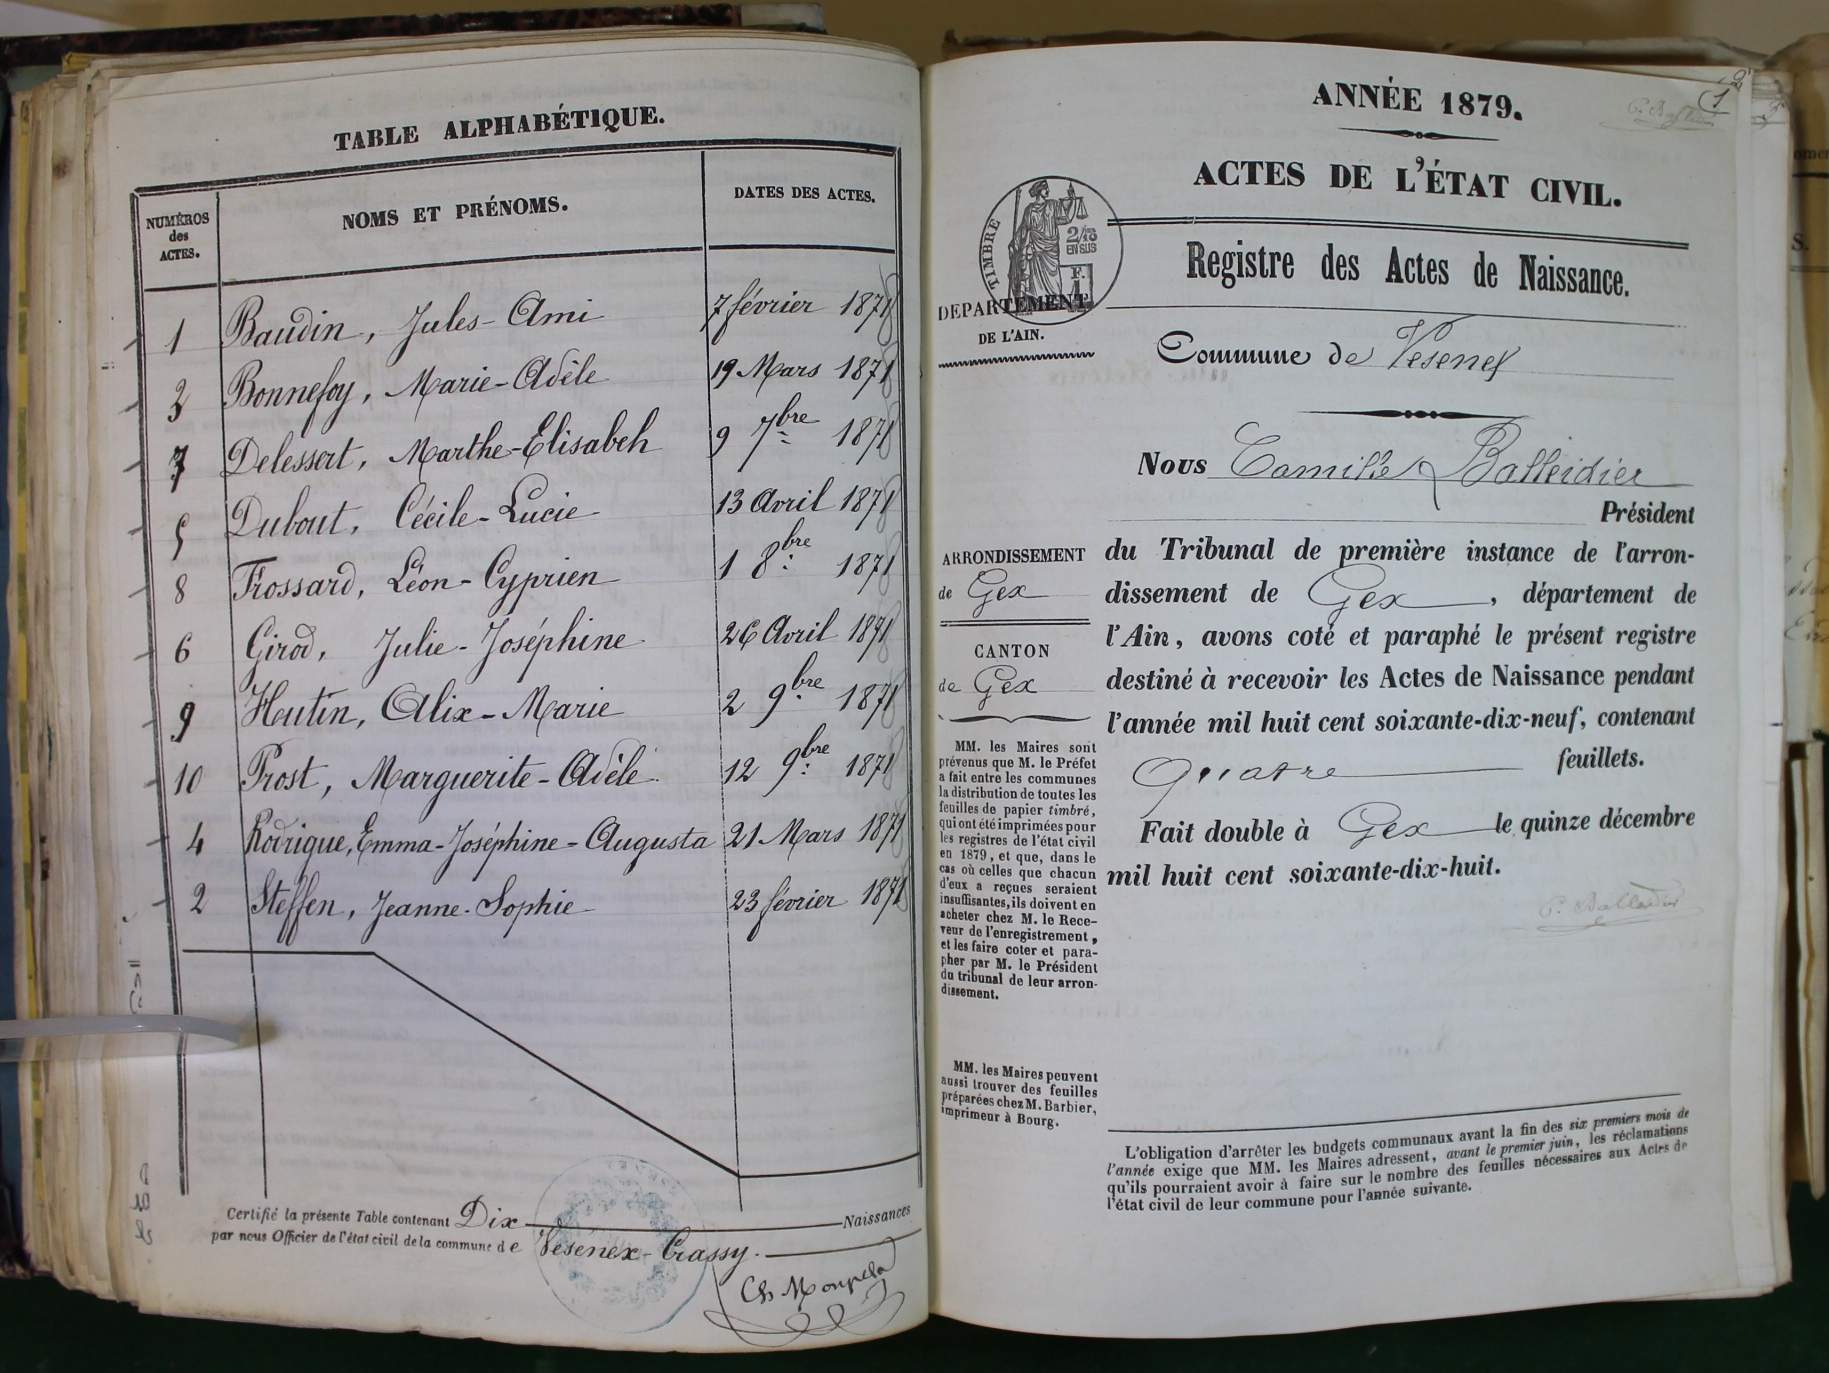 TABLE ALPHABÉTIQUE.
NUMÉROS des ACTES.
NOMS ET PRÉNOMS.
DATES DES ACTES.
1 Baudin, Jules-Ami 7 février 1878
3 Bonnefoy, Marie-Adèle 19 Mars 1878
7 Delessert, Marthe-Elisabeh 9 7bre 1878
5 Dubout, Cécile-Lucie 13 Avril 1878
8 Frossard, Léon-Cyprien 1 8bre 1878
6 Girod, Julie-Joséphine 26 Avril 1878
9 Hutin, Alix-Marie 2 9bre 1878
10 Prost, Marguerite-Adèle 12 9bre 1878
4 Rodrigue, Emma-Joséphine-Augusta 21 Mars 1878
2 Steffen, Jeanne-Sophie 23 février 1878
Certifié la présente Table contenant Dix Naissances
par nous Officier de l'état civil de la commune de Vesenex-Crassy.
ANNÉE 1879.
1
ACTES DE L'ÉTAT CIVIL.
TIMBRE
2/10
EN SUS
F.
1
Registre des Actes de Naissance.
DEPARTEMENT
DE L'AIN.
Commune de Vesenex
Nous Camille Balleidier
Président
du Tribunal de première instance de l'arron-
dissement de Gex, département de
l'Ain, avons coté et paraphé le présent registre
destiné à recevoir les Actes de Naissance pendant
l'année mil huit cent soixante-dix-neuf, contenant
quatre feuillets.
Fait double à Gex le quinze décembre
mil huit cent soixante-dix-huit.
C. Balleidier
ARRONDISSEMENT
de Gex
CANTON
de Gex
MM. les Maires sont
prévenus que M. le Préfet
a fait entre les communes
la distribution de toutes les
feuilles de papier timbré,
qui ont été imprimées pour
les registres de l'état civil
en 1879, et que, dans le
cas où celles que chacun
d'eux a reçues seraient
insuffisantes, ils doivent en
acheter chez M. le Rece-
veur de l'enregistrement,
et les faire coter et para-
pher par M. le Président
du tribunal de leur arron-
dissement.
MM. les Maires peuvent
aussi trouver des feuilles
préparées chez M. Barbier,
imprimeur à Bourg.
L'obligation d'arrêter les budgets communaux avant la fin des six premiers mois de
l'année exige que MM. les Maires adressent, avant le premier juin, les réclamations
qu'ils pourraient avoir à faire sur le nombre des feuilles nécessaires aux Actes de
l'état civil de leur commune pour l'année suivante.